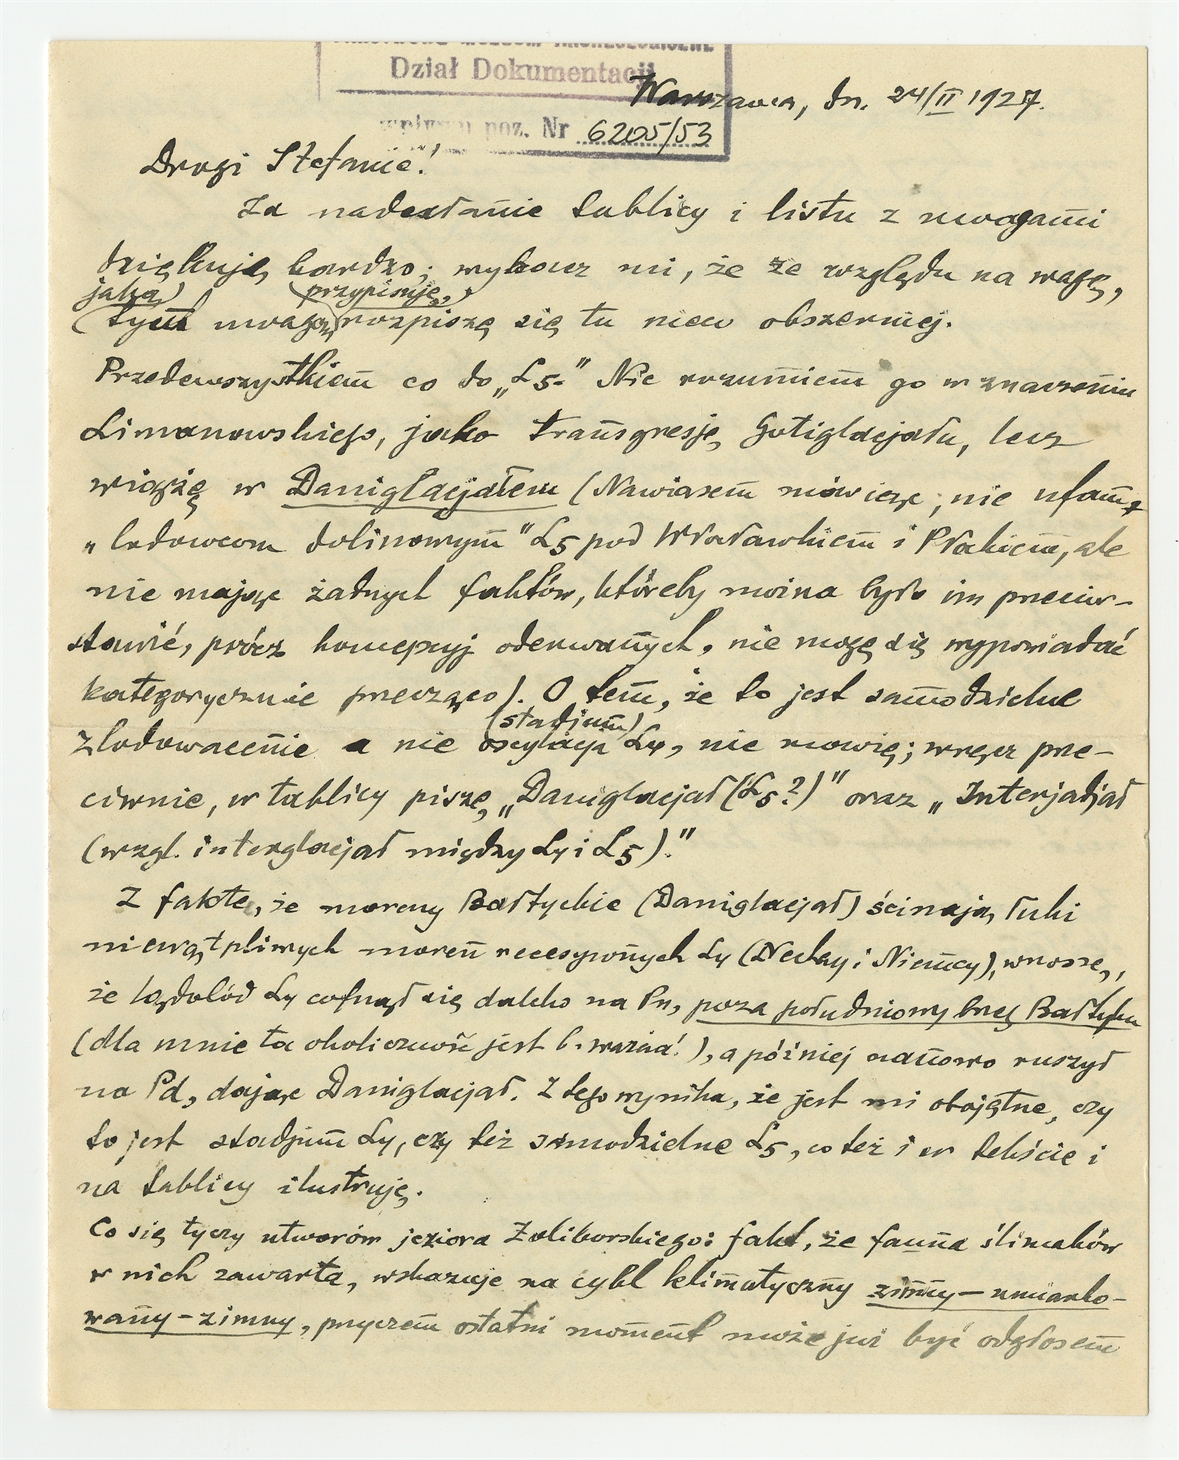 Dział Dokumentacji
Warszawa, dn. 24/II 1927.
wpływu poz. Nr 6205/53
Drogi Stefanie!
Za nadesłanie tablicy i listu z uwagami
dziękuję bardzo; wybacz mi, że ze względu na wagę,
jaką (przypisuję,)
(tym uwagom) rozpiszę się tu nieco obszerniej.
Przedewszystkiem co do „Ł5." Nie rozumiem go w znaczeniu
Limanowskiego, jako transgresję Gotiglacjału, lecz
wiążę w Daniglacjałem (Nawiasem mówiąc, nie ufam
„lodowcom dolinowym" Ł5 pod Włocławkiem i Płockiem, ale
nie mając żadnych faktów, któreby można było im przeciw-
stawić, prócz koncepcyj oderwanych, nie mogę się wypowiadać
kategorycznie przecząco). O tem, że to jest samodzielne
(stadjum)
zlodowacenie a nie oscylacja Ł4, nie mówię; wręcz prze-
ciwnie, w tablicy piszę „Daniglacjał (Ł5?)" oraz „Interjadjał
(wzgl. interglacjał między Ł4 i Ł5)."
Z faktu, że moreny Bałtyckie (Daniglacjał) ścinają łuki
niewątpliwych moren recesywnych Ł4 (Niemcy), wnoszę,
że lądolód Ł4 cofnął się daleko na Pn, poza południowy brzeg Bałtyku
(dla mnie ta okoliczność jest b. ważna!), a później nanowo ruszył
na Pd, dając Daniglacjał. Z tego wynika, że jest mi obojętne, czy
to jest stadjum Ł4, czy też samodzielne Ł5, co też i w tekście i
na tablicy ilustruję.
Co się tyczy utworów jeziora Żoliborskiego: fakt, że fauna ślimaków
w nich zawarta, wskazuje na cykl klimatyczny zimny – umiarko-
wany – zimny, przyczem ostatni moment może już być odgłosem